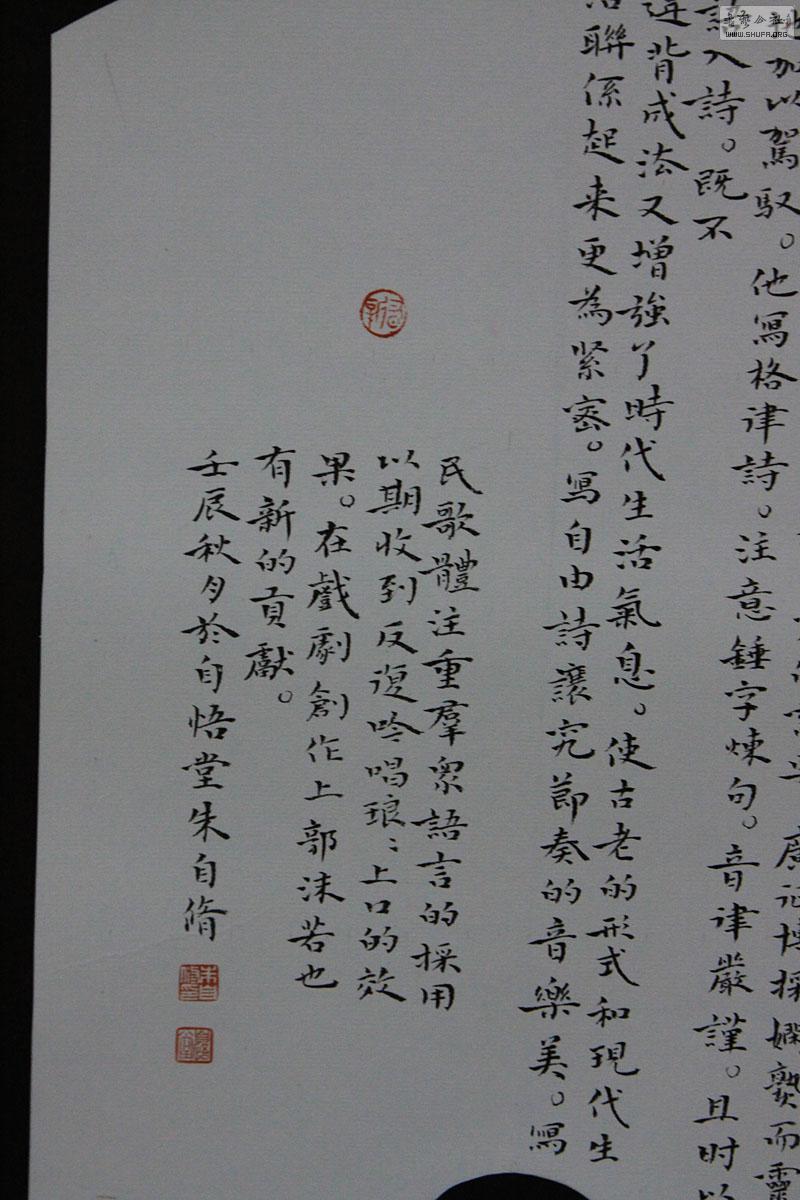 廣記博採嫻熟而靈
地加以駕馭。他寫格律詩。注意錘字煉句。音律嚴謹。且时以
入詩。既不
違背成法又增強了時代生活氣息。使古老的形式和現代生
活聯係起来更為緊密。寫自由詩講究節奏的音樂美。寫
民歌體注重羣眾語言的採用
以期收到反復吟唱琅〻上口的效
果。在戲劇創作上郭沫若也
有新的貢獻。
壬辰秋月於自悟堂朱自脩
WWW.SHUFA.ORG